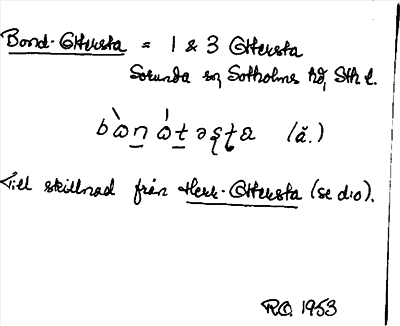 Bond-Ottersta = 1 & 3 Ottersta
Sorunda sn, Sotholms hd, Sth l.
(ä.)
Till skillnad från Herr-Ottersta (se d:o).
R.O. 1953